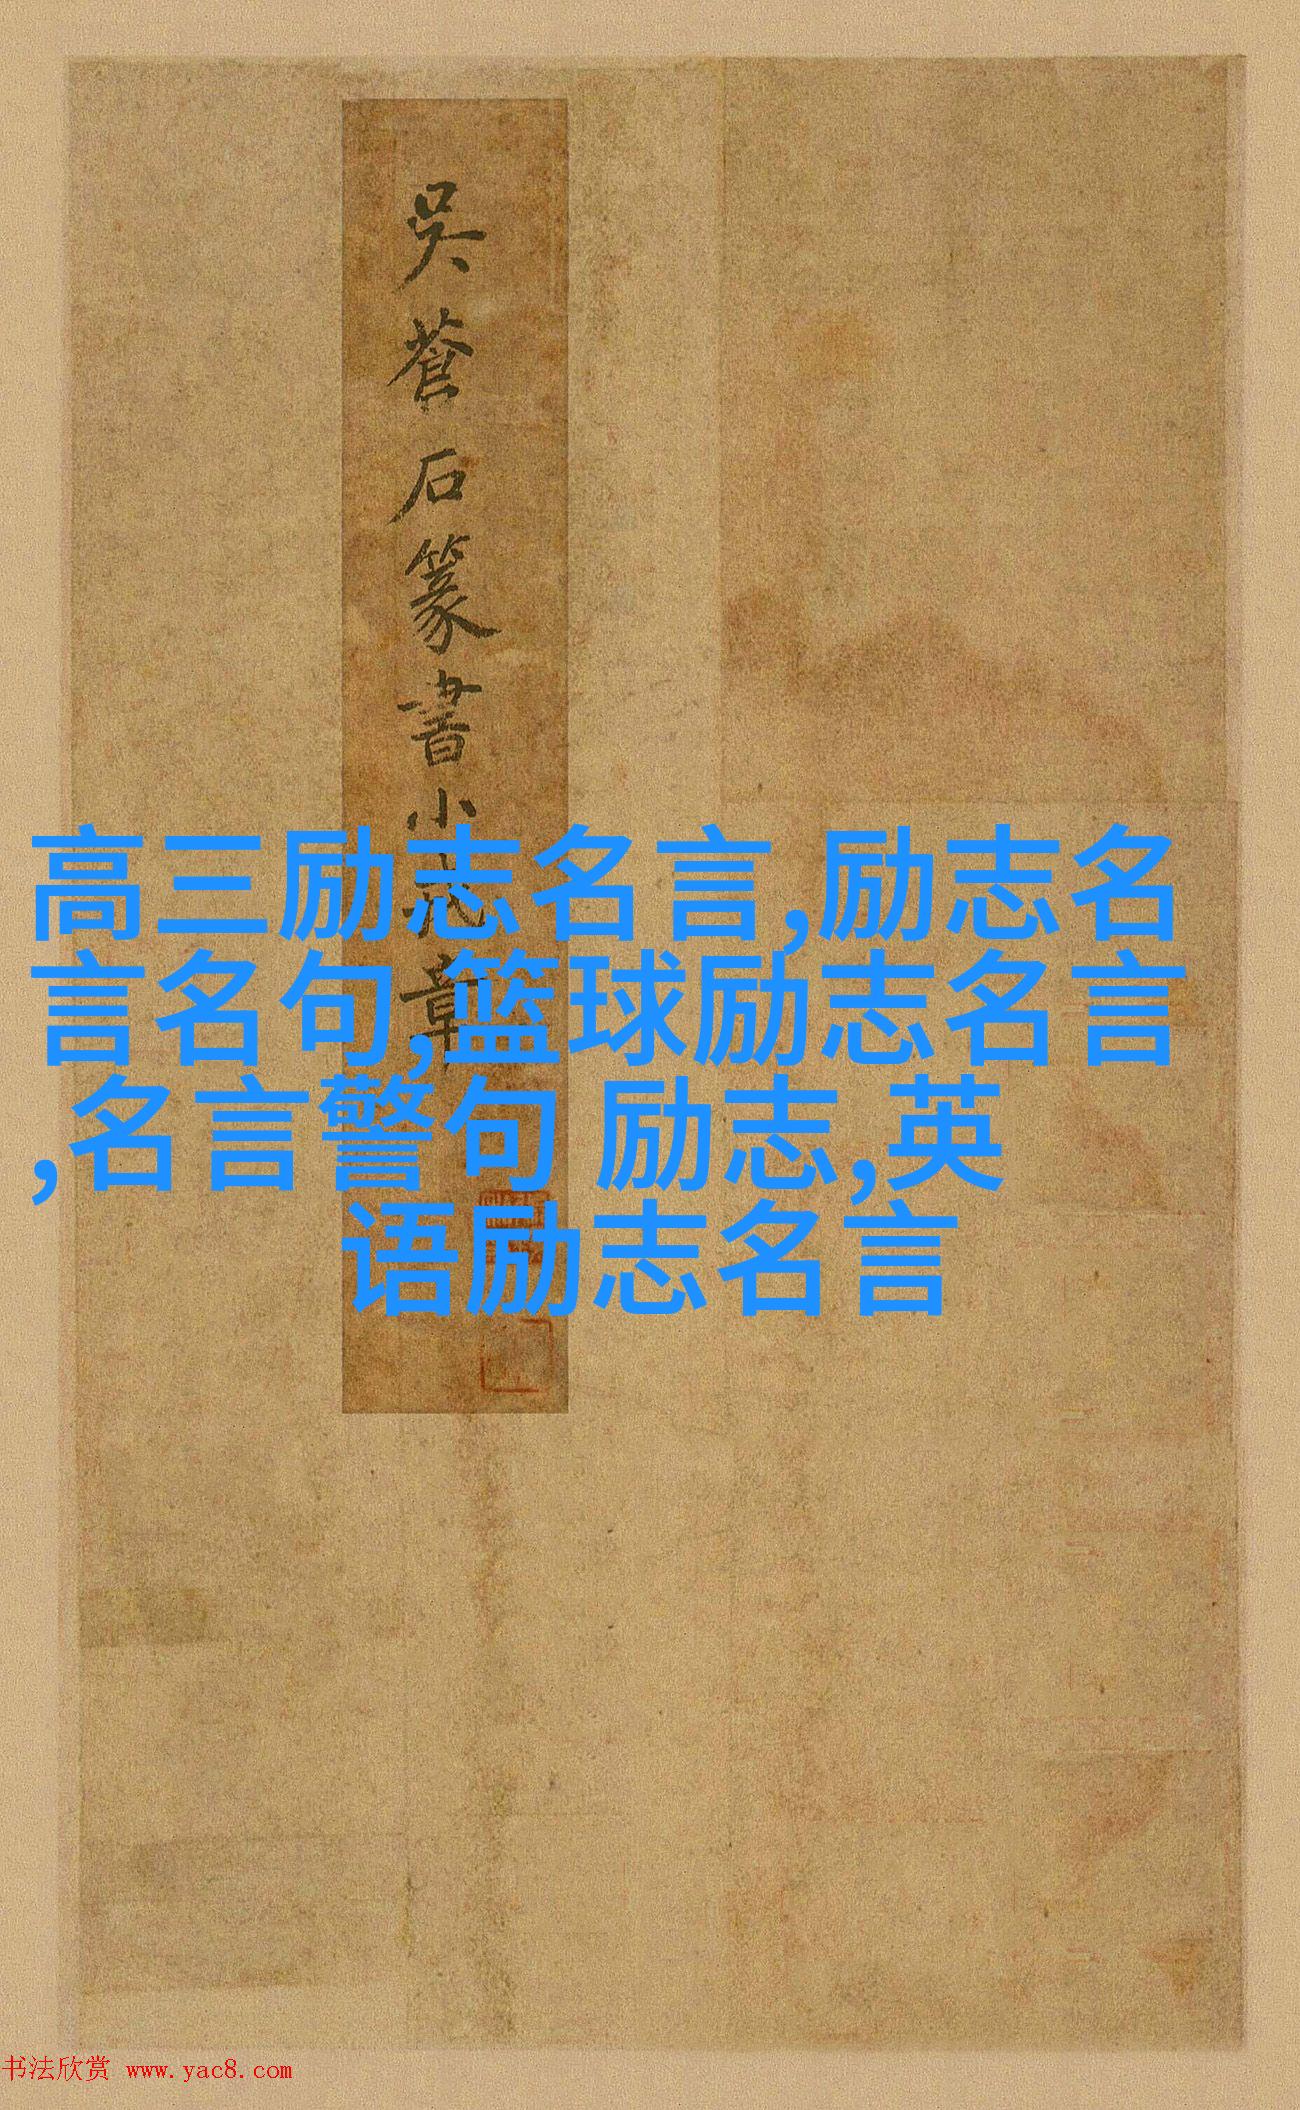 吳蒼石篆書小戎章
高三励志名言,励志名
言名句,篮球励志名言
,名言警句 励志,英
语励志名言
书法欣赏 www.yac8.com